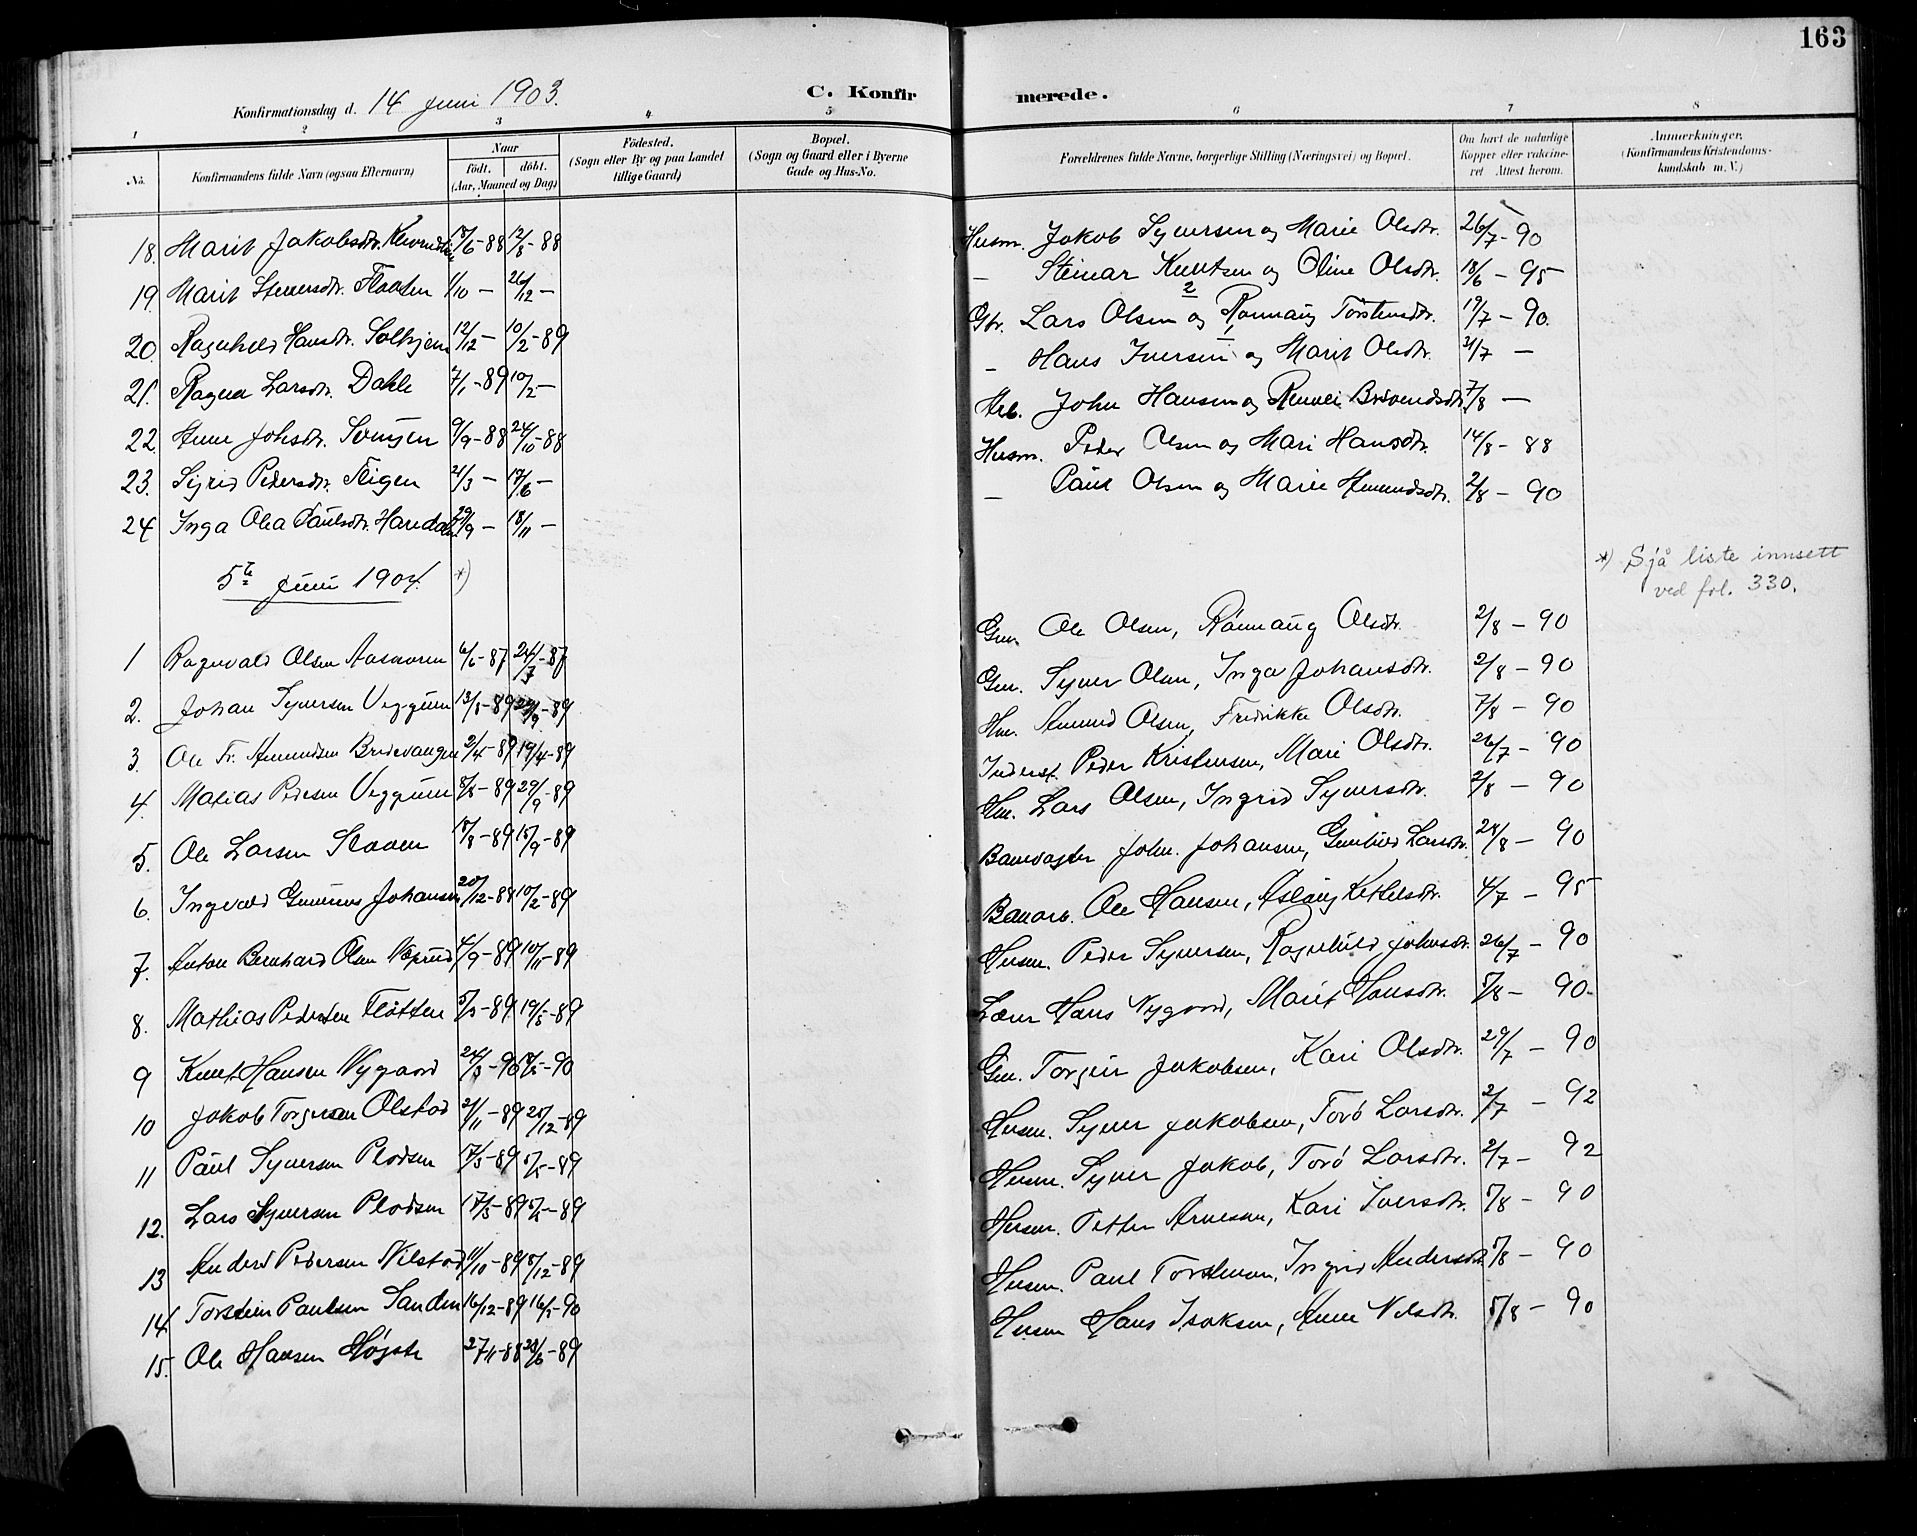 163
Konfirmationsdag d. 14 Juni 1903.
C. Konfirmerede.
1 2 3 4 5 6 7 8
No.
Konfirmandens fulde Navn (ogsaa Efternavn)
Naar
födt. döbt.
(Aar, Maaned og Dag)
Födested.
(Sogn eller By og paa Landet
tillige Gaard)
Bopæl.
(Sogn og Gaard eller i Byerne
Gade og Hus-No.
Forældrenes fulde Navne, borgerlige Stilling (Næringsvei) og Bopæl.
Om havt de naturlige
Kopper eller vaccine-
ret Attest herom.
Anmærkninger.
(Konfirmandens Kristendoms-
kundskab m. V.)
18. Marit Jakobsdtr. 18/6-88 12/8-88 Husm. Jakob Syversen og Marie Olsdtr. 26/7-90
19. Marit Steinersdtr. Flaaten 1/10 — 26/12 — — Steinar Knutsen og Oline Olsdtr. 18/6 - 95
20. Ragnhild Hansdtr. Solhjem 12/12 — 10/2-89 Gbr. Lars Olsen og Rønnaug Torstensdtr. 2 19/7 - 90.
21. Ragna Larsdtr. Dahle 7/1-89 10/2 — — Hans Iversen og Marit Olsdtr. 1 31/7 —
22. Anne Johsdtr. 9/9-88 24/10-88 Arb. John Hansen og Rennei 7/8 —
23. Sigrid Pedersdtr. Stigen 21/3 — 17/6 — Husm. Peder Olsen og Mari Hansdtr. 14/8 - 88
24 Inga Olea Paulsdtr. 29/9 — 18/11 — — Paul Olsen og Marie Amundsdtr. 2/8 - 90
5te Juni 1904. *)
*) Sjå liste innsett
ved fol. 330.
1 Ragnvald Olsen Aasmoren 6/6-87 24/7-87 Gm. Ole Olsen, Rønnaug Olsdtr. 2/8 - 90
2. Johan Syversen Veggum 13/8-89 29/9-89 Gm. Syver Olsen, Inga Johansdtr. 2/8 - 90
3. Ole Fr. Amundsen Bredevangen 2/4-89 19/4-89 Hm. Amund Olsen, Fredrikke Olsdtr. 7/8 - 90
4. Matias Pedersen Veggum 8/8-89 29/9-89 Inderst. Peder Kristensen, Mari Olsdtr. 26/7 - 90
5. Ole Larsen Staaen 18/8-89 15/9-89 Hm. Lars Olsen, Ingrid Syversdtr. 2/8 - 90
6. Ingvald Gunerius Johansen 20/12-88 10/2-89 Banevogter John. Johansen, Gunhild Larsdtr. 28/8 - 90
7. Anton Bernhard Olsen 4/9-89 10/11-89 Banarb. Ole Hansen, Aslaug Ketilsdtr. 4/7 - 95
8. Mathias Pedersen Fløtten 5/3-89 19/5-89 Husm. Peder Syversen, Ragnhild Johnsdtr. 26/7 - 90
9 Knut Hansen Nygaard 24/3-90 -90 Lærer Hans Nygaard, Marit Hansdtr. 5/8 - 90.
10 Jakob Torgersen Olstad 2/11-89 25/12-89 Gm. Torgeir Jakobsen, Kari Olsdtr. 29/7 - 90
11 Paul Syversen Pladsen 17/3-89 5/5-89 Husm. Syver Jakobsen, Torø Larsdtr. 2/7 - 92
12. Lars Syversen Pladsen 17/3-89 5/5-89 Husm. Syver Jakob, Torø Larsdtr. 2/7 - 92
13 Anders Pedersen Nilstad 11/10-89 8/12-89 Husm. Petter Arnesen, Kari Iversdtr. 5/8 - 90
14 Torstein Paulsen Sanden 16/12-89 16/2-90 Husm. Paul Torstensen, Ingrid Andersdtr. 5/8 - 90
15. Ole Hansen Høgste 27/11-88 23/6-89 Husm Hans Isaksen, Anne Nilsdtr. 5/8 - 90